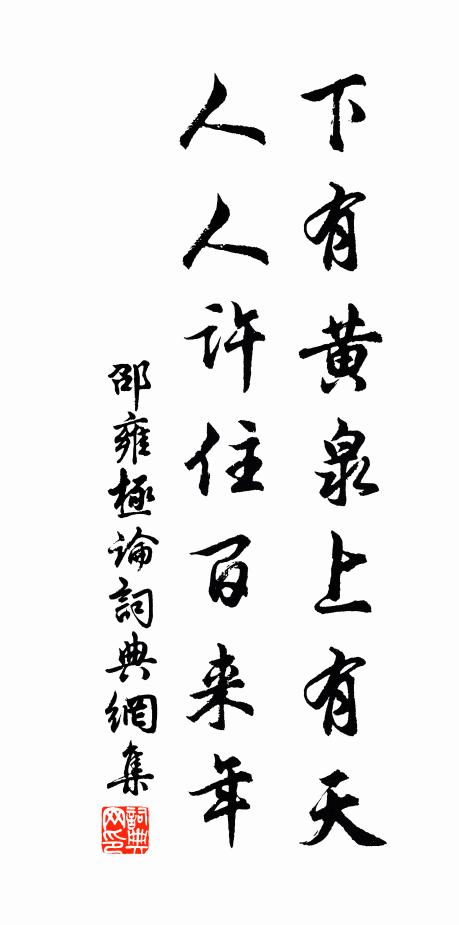 下有黄泉上有天
人人许住百来年
邵雍極论詞典網集
詞典网印